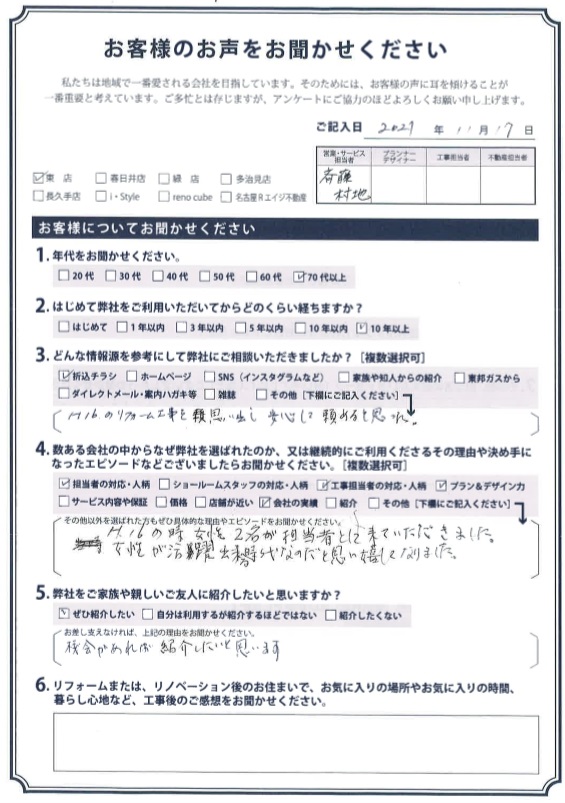 お客様のお声をお聞かせください
私たちは地域で一番愛される会社を目指しています。そのためには、お客様の声に耳を傾けることが
一番重要と考えています。ご多忙とは存じますが、アンケートにご協力のほどよろしくお願い申し上げます。
ご記入日 2021 年 11 月 17 日
営業・サービス担当者 プランナーデザイナー 工事担当者 不動産担当者
斉藤
村地
☑東 店 □春日井店 □緑 店 □多治見店
□長久手店 □i・Style □reno cube □名古屋Rエイジ不動産
お客様についてお聞かせください
1. 年代をお聞かせください。
□20代 □30代 □40代 □50代 □60代 ☑70代以上
2. はじめて弊社をご利用いただいてからどのくらい経ちますか？
□はじめて □1年以内 □3年以内 □5年以内 □10年以内 ☑10年以上
3. どんな情報源を参考にして弊社にご相談いただきましたか？［複数選択可］
☑折込チラシ □ホームページ □SNS（インスタグラムなど） □家族や知人からの紹介 □東邦ガスから
□ダイレクトメール・案内ハガキ等 □雑誌 □その他［下欄にご記入ください］
H.16.のリフォーム工事を 思い出し 安心して 頼めると思
4. 数ある会社の中からなぜ弊社を選ばれたのか、又は継続的にご利用くださるその理由や決め手に
なったエピソードなどございましたらお聞かせください。［複数選択可］
☑担当者の対応・人柄 □ショールームスタッフの対応・人柄 ☑工事担当者の対応・人柄 ☑プラン＆デザイン力
□サービス内容や保証 □価格 □店舗が近い ☑会社の実績 □紹介 □その他［下欄にご記入ください］
その他以外を選ばれた方もぜひ具体的な理由やエピソードをお聞かせください。
H.16の時 女性2名が担当者として来ていただきました。
女性が活躍出来る時代なのだと思い嬉しくなりました。
5. 弊社をご家族や親しいご友人に紹介したいと思いますか？
☑ぜひ紹介したい □自分は利用するが紹介するほどではない □紹介したくない
お差し支えなければ、上記の理由をお聞かせください。
機会があれば 紹介したいと思います
6. リフォームまたは、リノベーション後のお住まいで、お気に入りの場所やお気に入りの時間、
暮らし心地など、工事後のご感想をお聞かせください。